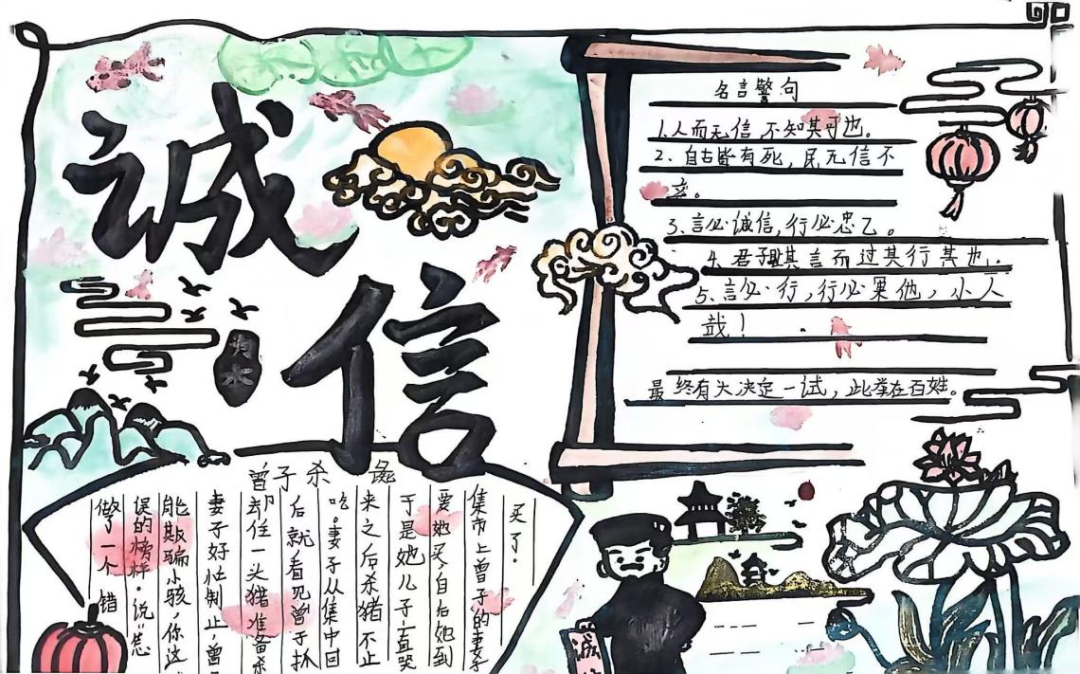 诚
信
为水
名言警句
1.人而无信 不知其可也。
2、自古皆有死，民无信不
立。
3、言必诚信，行必忠乙。
4、君子其言而过其行其也.
5、言必行，行必果他，小人
哉！
最终有大决定一试，此举在百姓。
曾子杀彘
买了.
集市上曾子的妻子
要她买,自后她到
于是她儿子一直哭
来之后杀猪不止
吃。妻子从集中回
后就看见曾子抓
却住一头猪准备杀
妻子好灶制止,曾
能欺骗小孩,你这
误的榜样.说怎
做了一个错
诚